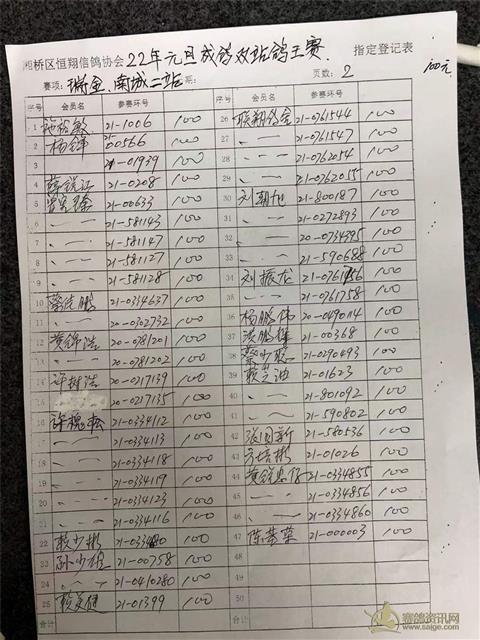 湘桥区恒翔信鸽协会22年元旦成鸽双站鸽王赛 指定登记表
赛项: 瑞金、南城二站 系: 页数: 2 100元
序号 会员名 参赛环号 序号 会员名 参赛环号
1 21-1006 100 26 21-0761544 100
2 杨锋 21-00566 100 27 21-0761547 100
3 21-01939 100 28 21-0762054 100
4 21-0208 100 29 21-0762055 100
5 21-00633 100 30 刘朝旭 21-800187 100
6 21-581143 100 31 21-0272893 100
7 21-581147 100 32 20-0734395 100
8 21-581127 100 33 21-590688 100
9 21-581128 100 34 刘振龙 21-0761756 100
10 21-0334637 100 35 21-0761758 100
11 20-0302732 100 36 杨鹏伟 20-0490114 100
12 黄锦浩 20-0781201 100 37 洪鹏雄 21-00368 100
13 20-0781202 100 38 21-0290493 100
14 许树浩 20-0217139 100 39 21-01623 100
15 20-0217135 100 40 21-801092 100
16 许槐松 21-0334112 100 41 21-590802 100
17 21-0334113 100 42 张国新 21-580536 100
18 21-0334118 100 43 方培彬 21-01026 100
19 21-0334119 100 44 21-0334855 100
20 21-0334123 100 45 21-0334856 100
21 21-0334116 100 46 21-0334860 100
22 赖少彬 100 47 21-000003 100
23 孙少雄 21-00758 100 48
24 21-0410280 100 49
25 赖英健 21-01399 100 50
合计 合计
赛鸽资讯网
www.saige.com